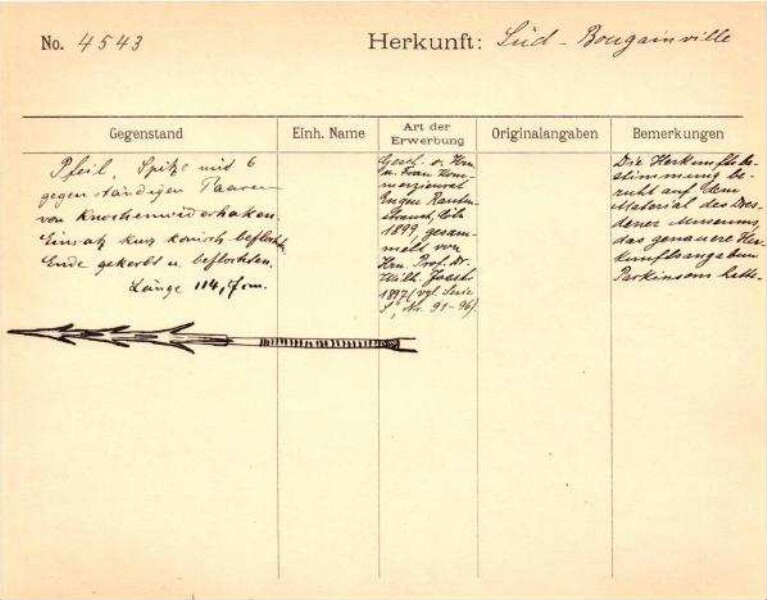 No. 4543
Herkunft: Süd - Bougainville
Gegenstand
Einh. Name
Art der Erwerbung
Originalangaben
Bemerkungen
Pfeil. Spitze mit 6
gegenständigen Paaren
von Knochenwiderhaken.
Einsatz kurz konisch beflochten,
Ende gekerbt u. beflochten.
Länge 114,7 cm.
Gesch. v. Hrn
u. Frau Kom-
merzienrat
Eugen Rauten-
strauch, Cöln
1899, gesam-
melt von
Hrn. Prof. Dr.
Wilh. Joest
1897 (vgl. Serie
S, Nr. 91-96).
Die Herkunftsbe-
stimmung be-
ruht auf dem
Material des Dres-
dener Museums,
das genauere Her-
kunftsangaben
Parkinsons hatte.